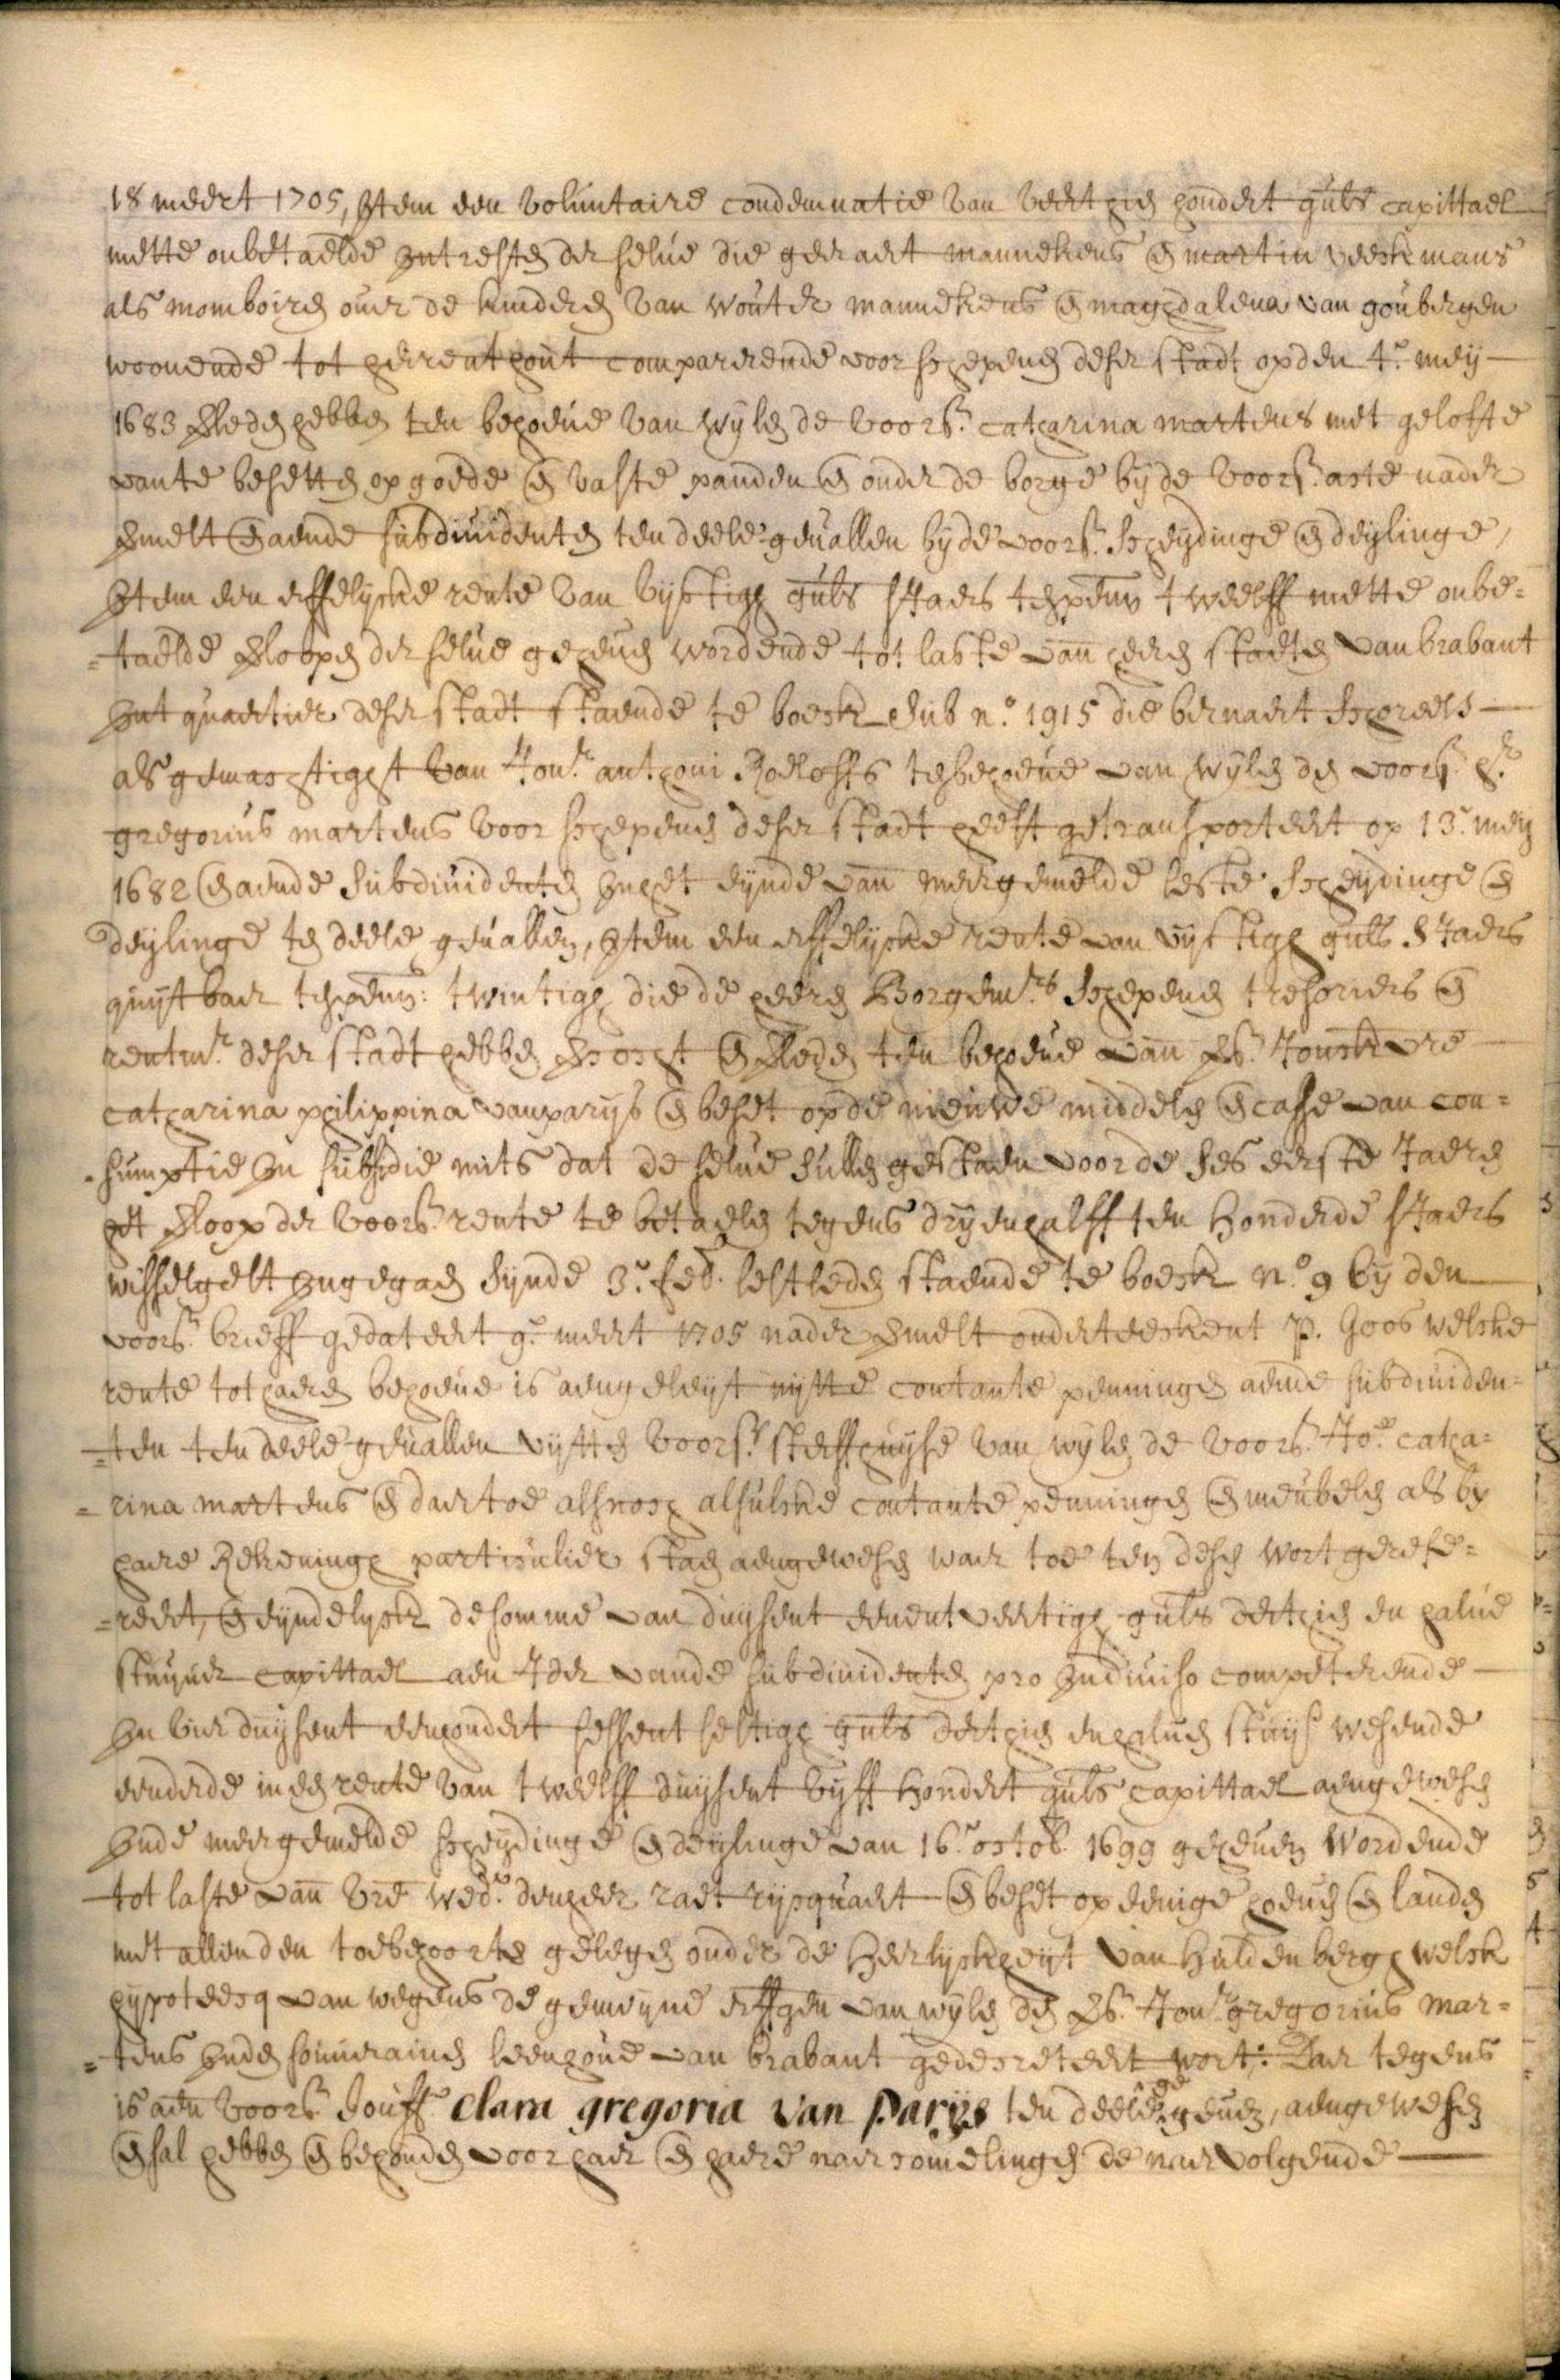 18 meert 1705, Item een voluntaire condemnatie van veerthien hondert guls capittael
mette onbetaelde intresten der selve die geeraert mannekens en martin veeckmans
als momboiren over de kinderen van wouter mannekens en magdalena van goubergen
woonende tot herrenthout comparerende voor schepenen deser stadt op den 4.e mey
1683 verleden hebben ten behoeve van wylen de voors. catharina martens met gelofte
van te besetten op goede en vaste panden en onder de borge by de voors. acte nader
vermelt en aende subdividenten ten deele gevallen byde voors. scheydinge en deylinge,
Item een erffelycke rente van vyftigh guls siaers tegen den penn. twelff mette onbe=
=taelde verloopen der selve geheven wordende tot laste van heeren staeten van brabant
Int quartier deser stadt staende te boeck sub n.o 1915 die bernaert schoreels
als gemachtight van Jor. anthoni Roeloffs tesbehoeve van wylen den voors. hr.
gregorius martens voor schepenen deser stadt heeft getransporteert op 13.e mey
1682 en aende subdividenten Inhet eynde van meergemelde leste scheydinge en
deylinge ten deele gevallen, Item een erffelycke rente van vyftigh guls siaers
quytbaer den penn: twintigh die de heeren Borgemrs schepenen tresoriers en
rentmr. deser stadt hebben vercocht en verleden ten behoeve van vs. Jouckvre
catharina philippina van parys en beset op de nieuwe middelen en casse van con=
=sumptie In subsidie mits dat de selve sullen gestaen voor de ses eerste Jaeren
het verloop der voors. rente te betaelen tegens dryenhalff ten Honderde siaers
wisselgelt Ingegaen synde 3.e feb. lestleden staende te boeck n.o 9 by den
voors. brieff gedateert 9.e meert 1705 nader vermelt onderteeckent P. Goos welcke
rente tot haeren behoeve is aengeleyt uytte contante penningen aende subdividen=
=ten ten deele gevallen uytten voors. sterffhuyse van wylen de voors. Jo.e catha=
=rina martens en daertoe alsnoch alsulcke contante penningen en meubelen als by
haere Rekeninge particulier staen aengewesen waer toe ten desen wort gerefe=
=reert, en eyndelyck de somme van duysent eenentveertigh guls derthien en halve
stuyver capittael aen Ider vande subdividenten pro Indiviso competerende
In vier duysent eenhondert sessent sestigh guls derthien enhalven stuyv. wesende
eenderde in een rente van twelff duysent vyff Hondert guls capittael aengewesen
Inde meergemelde scheydinge en deylinge van 16.e octob. 1699 geheven Wordende
tot laste van vre wede. den heer raet rysquaert en beset op eenige hoeven en landen
met allen den toebehoorten gelegen onder de Heerlyckheyt van Huldenbergh welck
hypoteecq van wegens de gemeyne erffgen van wylen den vs. Jor. gregorius mar=
=tens Inden souverainen leenhove van brabant gedecreteert wort: Daer tegens
is aen voors. Jouff. Clara gregoria van Parys ten deele gegeven, aengewesen
en sal hebben en behouden voor haer en haere naercomelingen de naervolgende